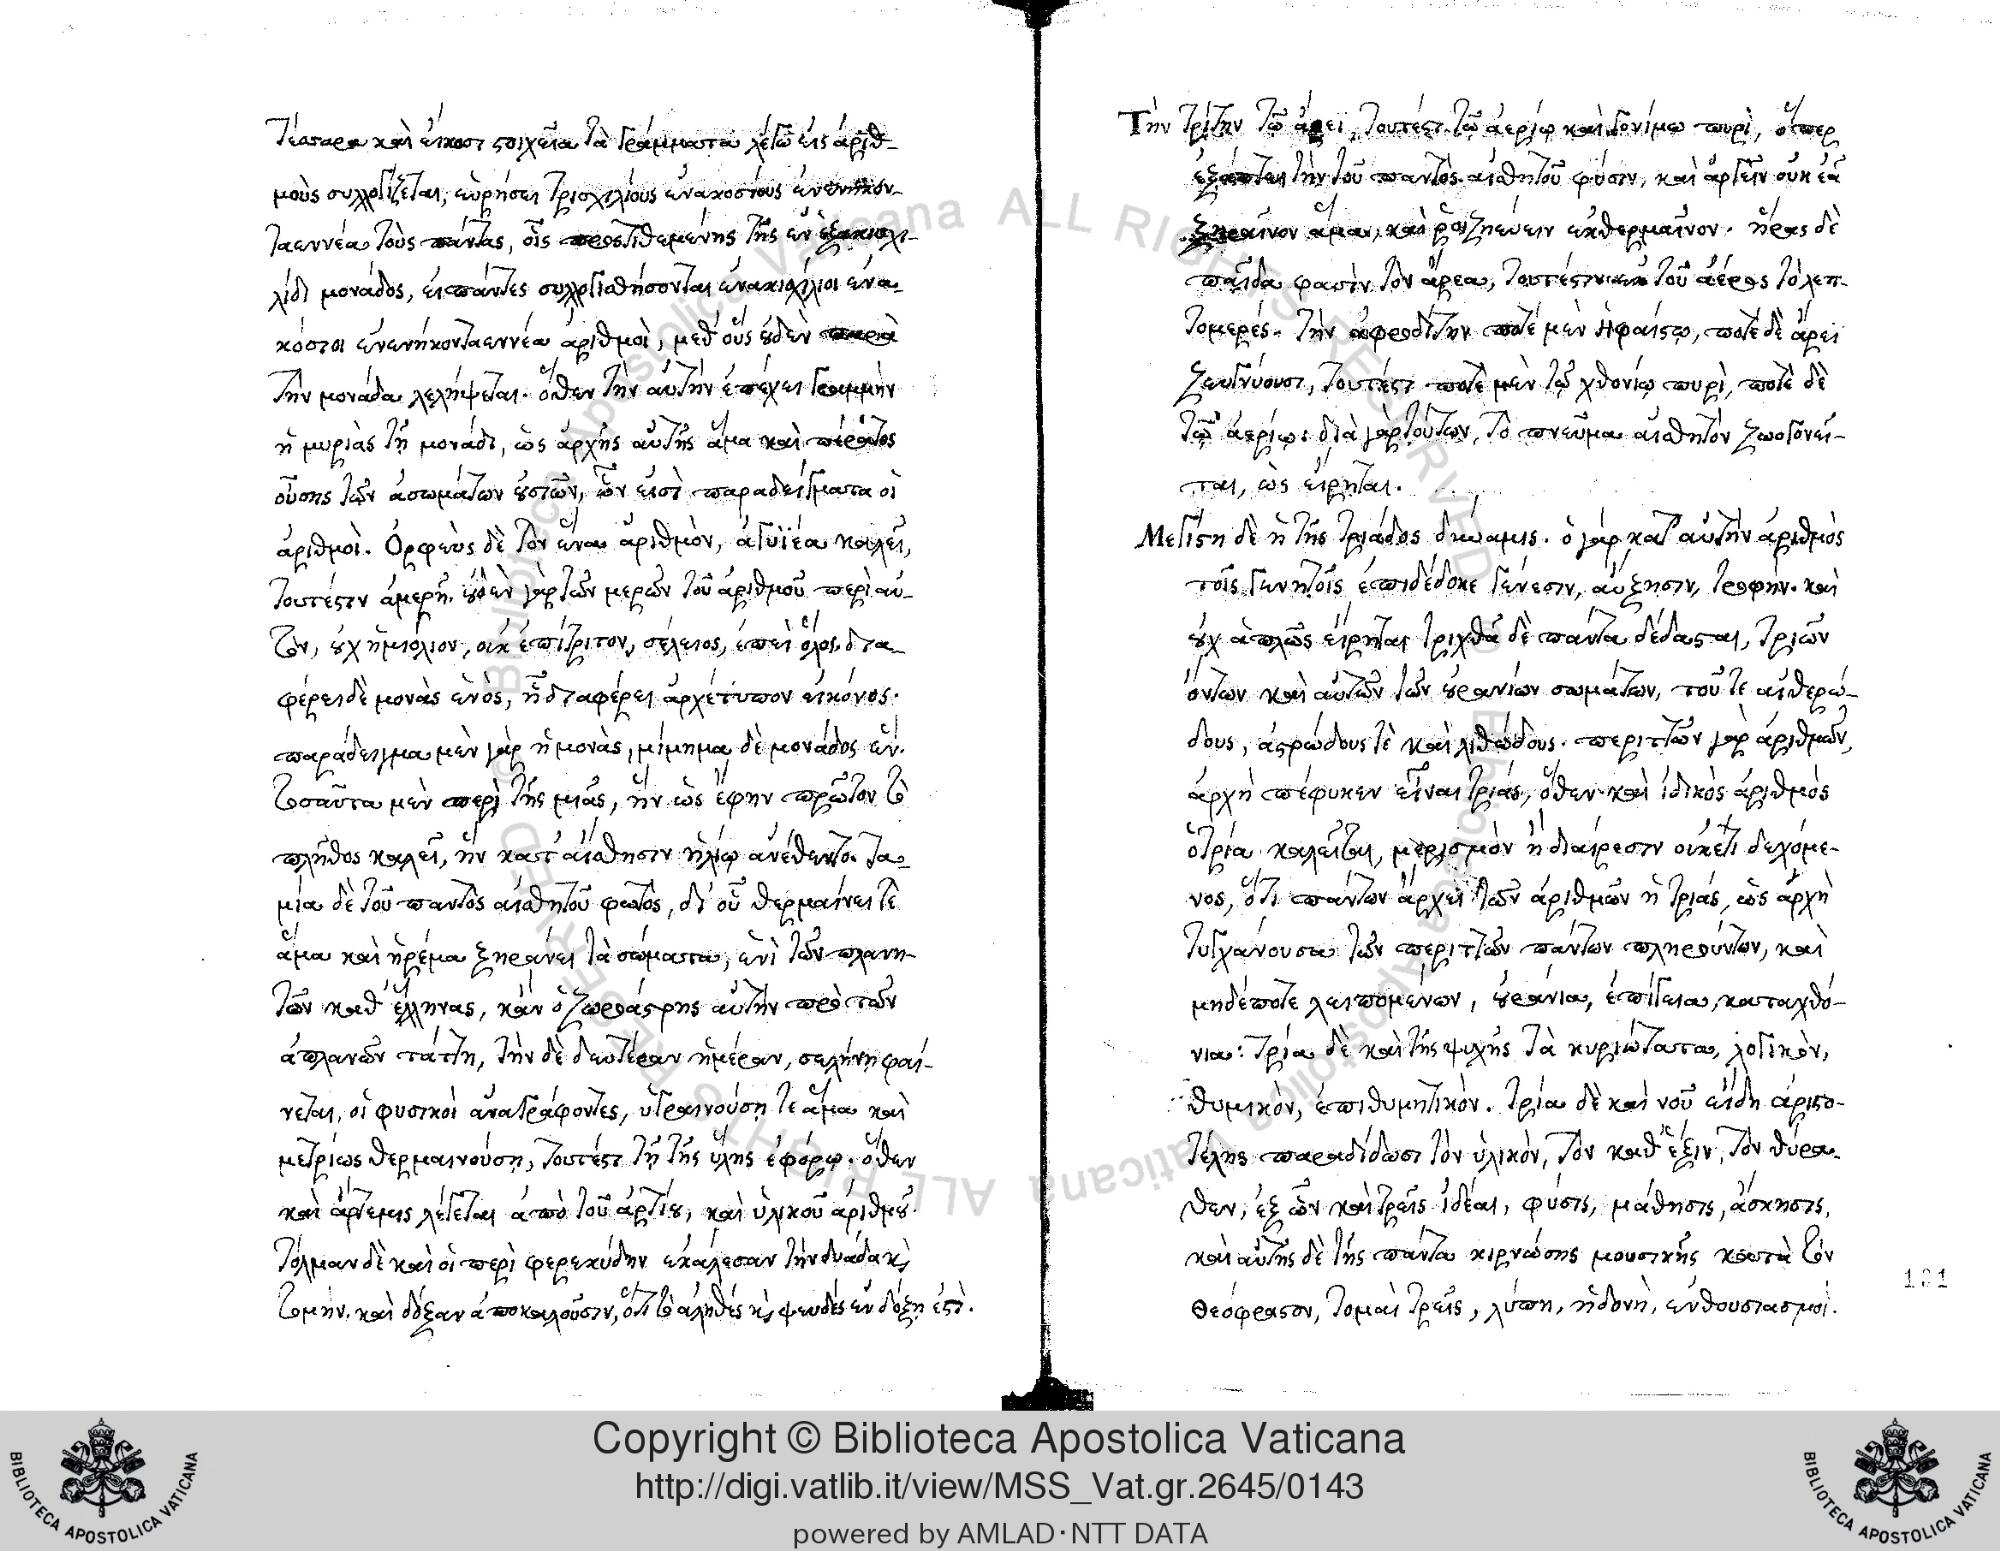 τέσσαρα καὶ εἴκοσι στοιχεῖα τὰ γράμματα λέγω εἰς ἀριθ-
μοὺς συλλογίζεται, εὑρήσει τρισχιλίους ἐνακοσίους ἐνενηκον-
ταεννέα τοὺς πάντας, οἷς προστιθεμένης τῆς ἐν ἑξακισχι-
λίδι μονάδος, εἰ πάντες συλλογισθήσονται ἐνακισχίλιοι ἐνα-
κόσιοι ἐνενήκονταεννέα ἀριθμοὶ, μεθ' οὓς οὐδὲν παρὰ
τὴν μονάδα λελήψεται. ὅθεν τὴν αὐτὴν ἐπέχει γραμμὴν
ἡ μυριὰς τῇ μονάδι, ὡς ἀρχῆς αὐτῆς ἅμα καὶ πέρατος
οὔσης τῶν ἀσωμάτων οὐσιῶν, ὧν εἰσὶ παραδείγματα οἱ
ἀριθμοὶ. Ὀρφεὺς δὲ τὸν ἕνα ἀριθμὸν, ἀγυϊέα καλεῖ,
τουτέστιν ἀμερῆ. οὐδὲν γὰρ τῶν μερῶν τοῦ ἀριθμοῦ περὶ αὐ-
τὸν, οὐχ ἡμιόλιον, οὐκ ἐπίτριτον, τέλειος, ἐπεὶ ὅλος. δια-
φέρει δὲ μονὰς ἑνὸς, ᾗ διαφέρει ἀρχέτυπον εἰκόνος.
παράδειγμα μὲν γὰρ ἡ μονὰς, μίμημα δὲ μονάδος ἕν.
τοσαῦτα μὲν περὶ τῆς μιᾶς, ἣν ὡς ἔφην πρῶτον τὸ
πλῆθος καλεῖ, ἣν κατ' αἴσθησιν ἡλίῳ ἀνέθεντο. τα-
μία δὲ τοῦ παντὸς αἰσθητοῦ φωτὸς, δι' οὗ θερμαίνει τε
ἅμα καὶ ἠρέμα ξηραίνει τὰ σώματα, ἑνὶ τῶν πλανη-
τῶν καθ' ἕλληνας, κἂν ὁ ζωροάστρης αὐτὴν πρὸ τῶν
ἀπλανῶν τάττῃ, τὴν δὲ δευτέραν ἡμέραν, σελήνῃ φαί-
νεται, οἱ φυσικοὶ ἀναγράφοντες, ὑγραινούσῃ τε ἅμα καὶ
μετρίως θερμαινούσῃ, τουτέστι τῇ τῆς ὕλης ἐφόρῳ. ὅθεν
καὶ ἄρτεμις λέγεται ἀπὸ τοῦ ἀρτίου, καὶ ὑλικοῦ ἀριθμοῦ.
τόλμαν δὲ καὶ οἱ περὶ φερεκύδην ἐκάλεσαν τὴν δυάδα καὶ
τομήν. καὶ δόξαν ἀποκαλοῦσιν, ὅτι τὸ ἀληθὲς καὶ ψευδὲς ἐν δόξῃ ἐστὶ.
Τὴν τρίτην τῷ ἄρει, τουτέστι τῷ ἀερίῳ καὶ γονίμῳ πυρὶ, ὅπερ
ἐξάπτει τὴν τοῦ παντὸς αἰσθητοῦ φύσιν, καὶ ἀργεῖν οὐκ ἐᾶ
ξηραῖνον ἅμα, καὶ ἐκθερμαῖνον. ἥρας δὲ
παῖδα φασὶν τὸν ἄρεα, τουτέστιν ἐκ τοῦ ἀέρος τὸ λεπ-
τομερές. τὴν ἀφροδίτην ποτὲ μὲν ἡφαίστῳ, ποτὲ δὲ ἄρει
ζευγνύουσι, τουτέστι ποτὲ μὲν τῷ χθονίῳ πυρὶ, ποτὲ δὲ
τῷ ἀερίῳ. διὰ γὰρ τούτων, τὸ πνεῦμα αἰσθητὸν ζωογονεῖ-
ται, ὡς εἴρηται.
Μεγίστη δὲ ἡ τῆς τριάδος δύναμις. ὁ γὰρ κατ' αὐτὴν ἀριθμὸς
τοῖς γεννητοῖς ἐπιδέδωκε γένεσιν, αὔξησιν, τροφὴν. καὶ
οὐχ ἁπλῶς εἴρηται τριχθὰ δὲ πάντα δέδασται, τριῶν
ὄντων καὶ αὐτῶν τῶν οὐρανίων σωμάτων, τοῦ τε αἰθερώ-
δους, ἀστρώδους τὲ καὶ λιθώδους. περιττῶν γὰρ ἀριθμῶν,
ἀρχὴ πέφυκεν εἶναι τριάς, ὅθεν καὶ ἰδικὸς ἀριθμὸς
ὁ τρία καλεῖται, μερισμὸν ἢ διαίρεσιν οὐκέτι δεχόμε-
νος, ὅτι πάντων ἄρχει τῶν ἀριθμῶν ἡ τριάς, ὡς ἀρχὴ
τυγχάνουσα τῶν περιττῶν πάντων πληρούντων, καὶ
μηδέποτε λειπομένων, οὐράνια, ἐπίγεια, καταχθό-
νια: τρία δὲ καὶ τῆς ψυχῆς τὰ κυριώτατα, λογικὸν,
θυμικὸν, ἐπιθυμητικὸν. τρία δὲ καὶ νοῦ εἴδη ἀριστο-
τέλης παραδίδωσι τὸν ὑλικὸν, τὸν καθ' ἕξιν, τὸν θύρα-
θεν, ἐξ ὧν καὶ τρεῖς ἰδέαι, φύσις, μάθησις, ἄσκησις,
καὶ αὐτῆς δὲ τῆς πάντα κιρνώσης μουσικῆς κατὰ τὸν
θεόφραστον, τομαὶ τρεῖς, λύπη, ἡδονὴ, ἐνθουσιασμοί.
Copyright © Biblioteca Apostolica Vaticana
http://digi.vatlib.it/view/MSS_Vat.gr.2645/0143
powered by AMLAD･NTT DATA